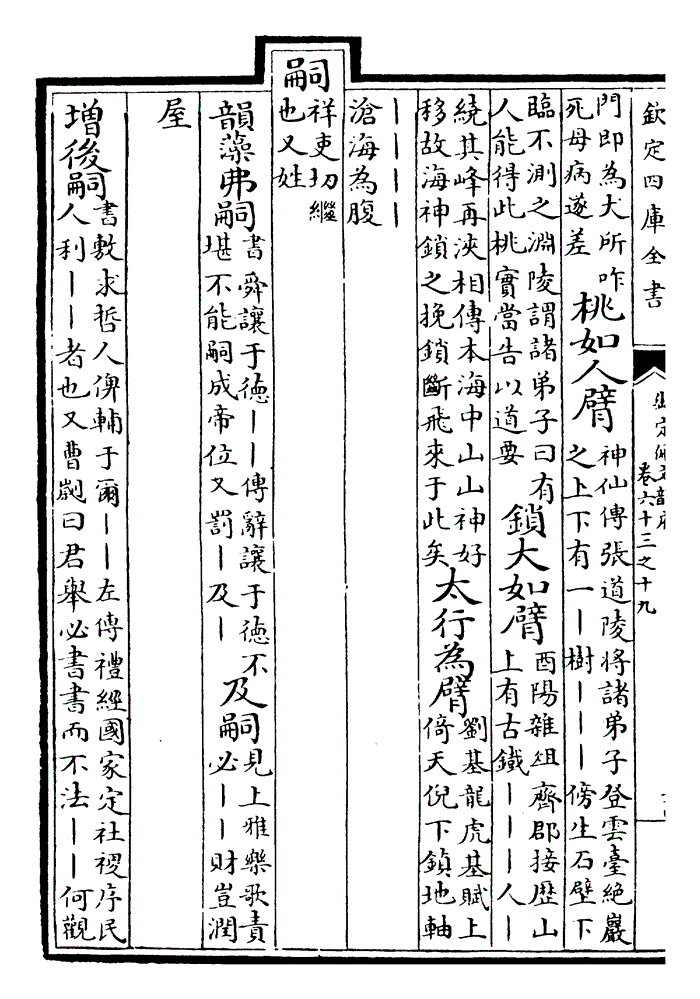 欽定四庫全書
御定佩文韻府
卷六十三之十九
門即為犬所咋
死母病遂差
桃如人臂
神仙傳張道陵將諸弟子登雲臺絶巖
之上下有一丨樹丨丨丨傍生石壁下
臨不測之淵陵謂諸弟子曰有
人能得此桃實當告以道要
鎖大如臂
酉陽雜組齊郡接歴山
上有古鐵丨丨丨人丨
繞其峰再浹相傳本海中山山神好
移故海神鎖之挽鎖斷飛來于此矣
太行為臂
劉基龍虎基賦上
倚天倪下鎮地軸
丨丨丨丨
滄海為腹
嗣
祥吏切繼
也又姓
韻藻弗嗣
書舜讓于徳丨丨傳辭讓于徳不
堪不能嗣成帝位又罰丨及丨
及嗣
見上雅樂歌責
必丨丨財豈潤
屋
増後嗣
書敷求哲人俾輔于爾丨丨左傳禮經國家定社稷序民
人利丨丨者也又曹劌曰君舉必書書而不法丨丨何觀